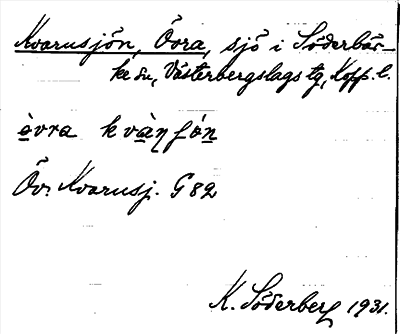 Kvarnsjön, Övra, sjö i Söderbär-
ke sn, Västerbergslags tg, Kopp. l.
èvra kvàɳʃón
Öv. Kvarnsj. G 82
K. Söderberg 1931.